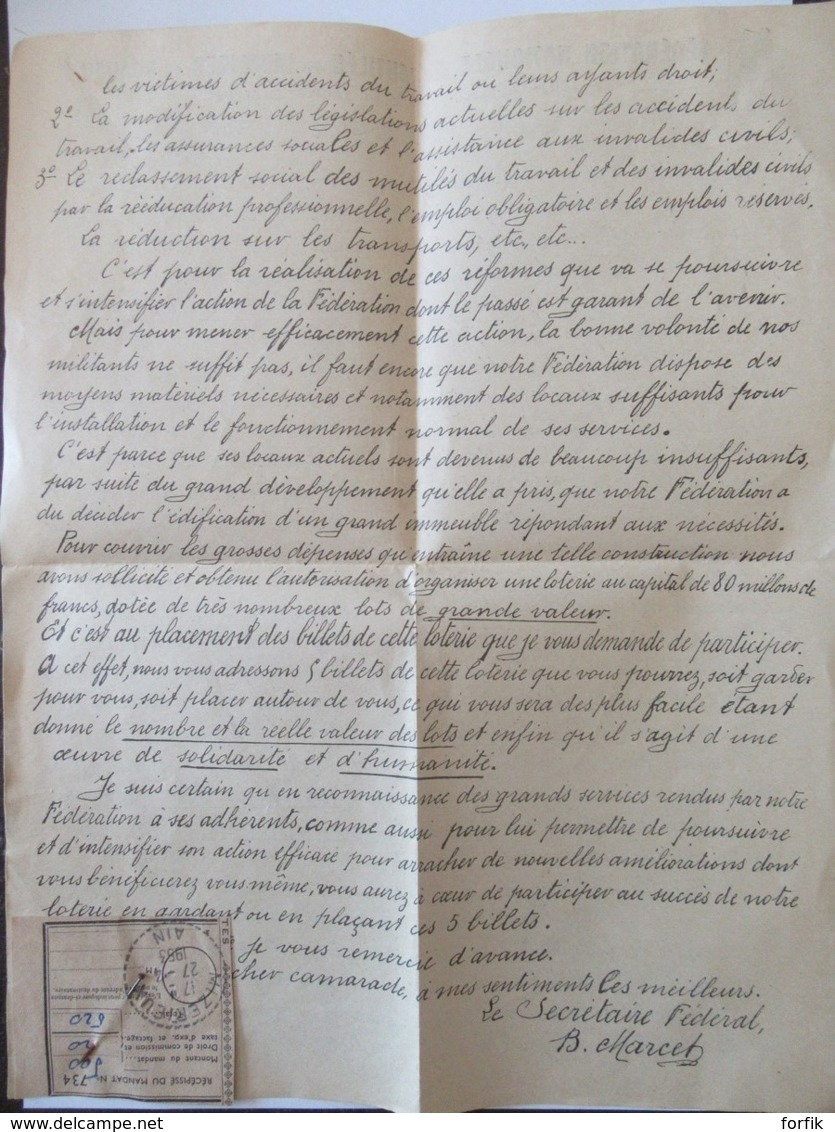 les victimes d'accidents du travail ou leurs ayants droit;
2º La modification des législations actuelles sur les accidents du
travail, les assurances sociales et l'assistance aux invalides civils;
3º Le reclassement social des mutilés du travail et des invalides civils
par la rééducation professionnelle, l'emploi obligatoire et les emplois réservés.
La réduction sur les transports, etc., etc...
C'est pour la réalisation de ces réformes que va se poursuivre
et s'intensifier l'action de la Fédération dont le passé est garant de l'avenir.
Mais pour mener efficacement cette action, la bonne volonté de nos
militants ne suffit pas, il faut encore que notre Fédération dispose des
moyens matériels nécessaires et notamment des locaux suffisants pour
l'installation et le fonctionnement normal de ses services.
C'est parce que ses locaux actuels sont devenus de beaucoup insuffisants,
par suite du grand développement qu'elle a pris, que notre Fédération a
du décider l'édification d'un grand immeuble répondant aux nécessités.
Pour couvrir les grosses dépenses qu'entraîne une telle construction nous
avons sollicité et obtenu l'autorisation d'organiser une loterie au capital de 80 millons de
francs, dotée de très nombreux lots de grande valeur.
Et c'est au placement des billets de cette loterie que je vous demande de participer.
A cet effet, nous vous adressons 5 billets de cette loterie que vous pourrez, soit garder
pour vous, soit placer autour de vous, ce qui vous sera des plus facile étant
donné le nombre et la réelle valeur des lots et enfin qu'il s'agit d'une
œuvre de solidarité et d'humanité.
Je suis certain qu'en reconnaissance des grands services rendus par notre
Fédération à ses adhérents, comme aussi pour lui permettre de poursuivre
et d'intensifier son action efficace pour arracher de nouvelles améliorations dont
vous bénéficierez vous même, vous aurez à cœur de participer au succès de notre
loterie en gardant ou en plaçant ces 5 billets.
Je vous remercie d'avance.
cher camarade, à mes sentiments les meilleurs.
Le Secrétaire Fédéral,
B. Marcet
RÉCÉPISSÉ DU MANDAT N° 734
Montant du mandat 500
Droit de commission et 20
taxe d'exp. et factage
520
MIZERIEUX
17 H
27
1953
AIN